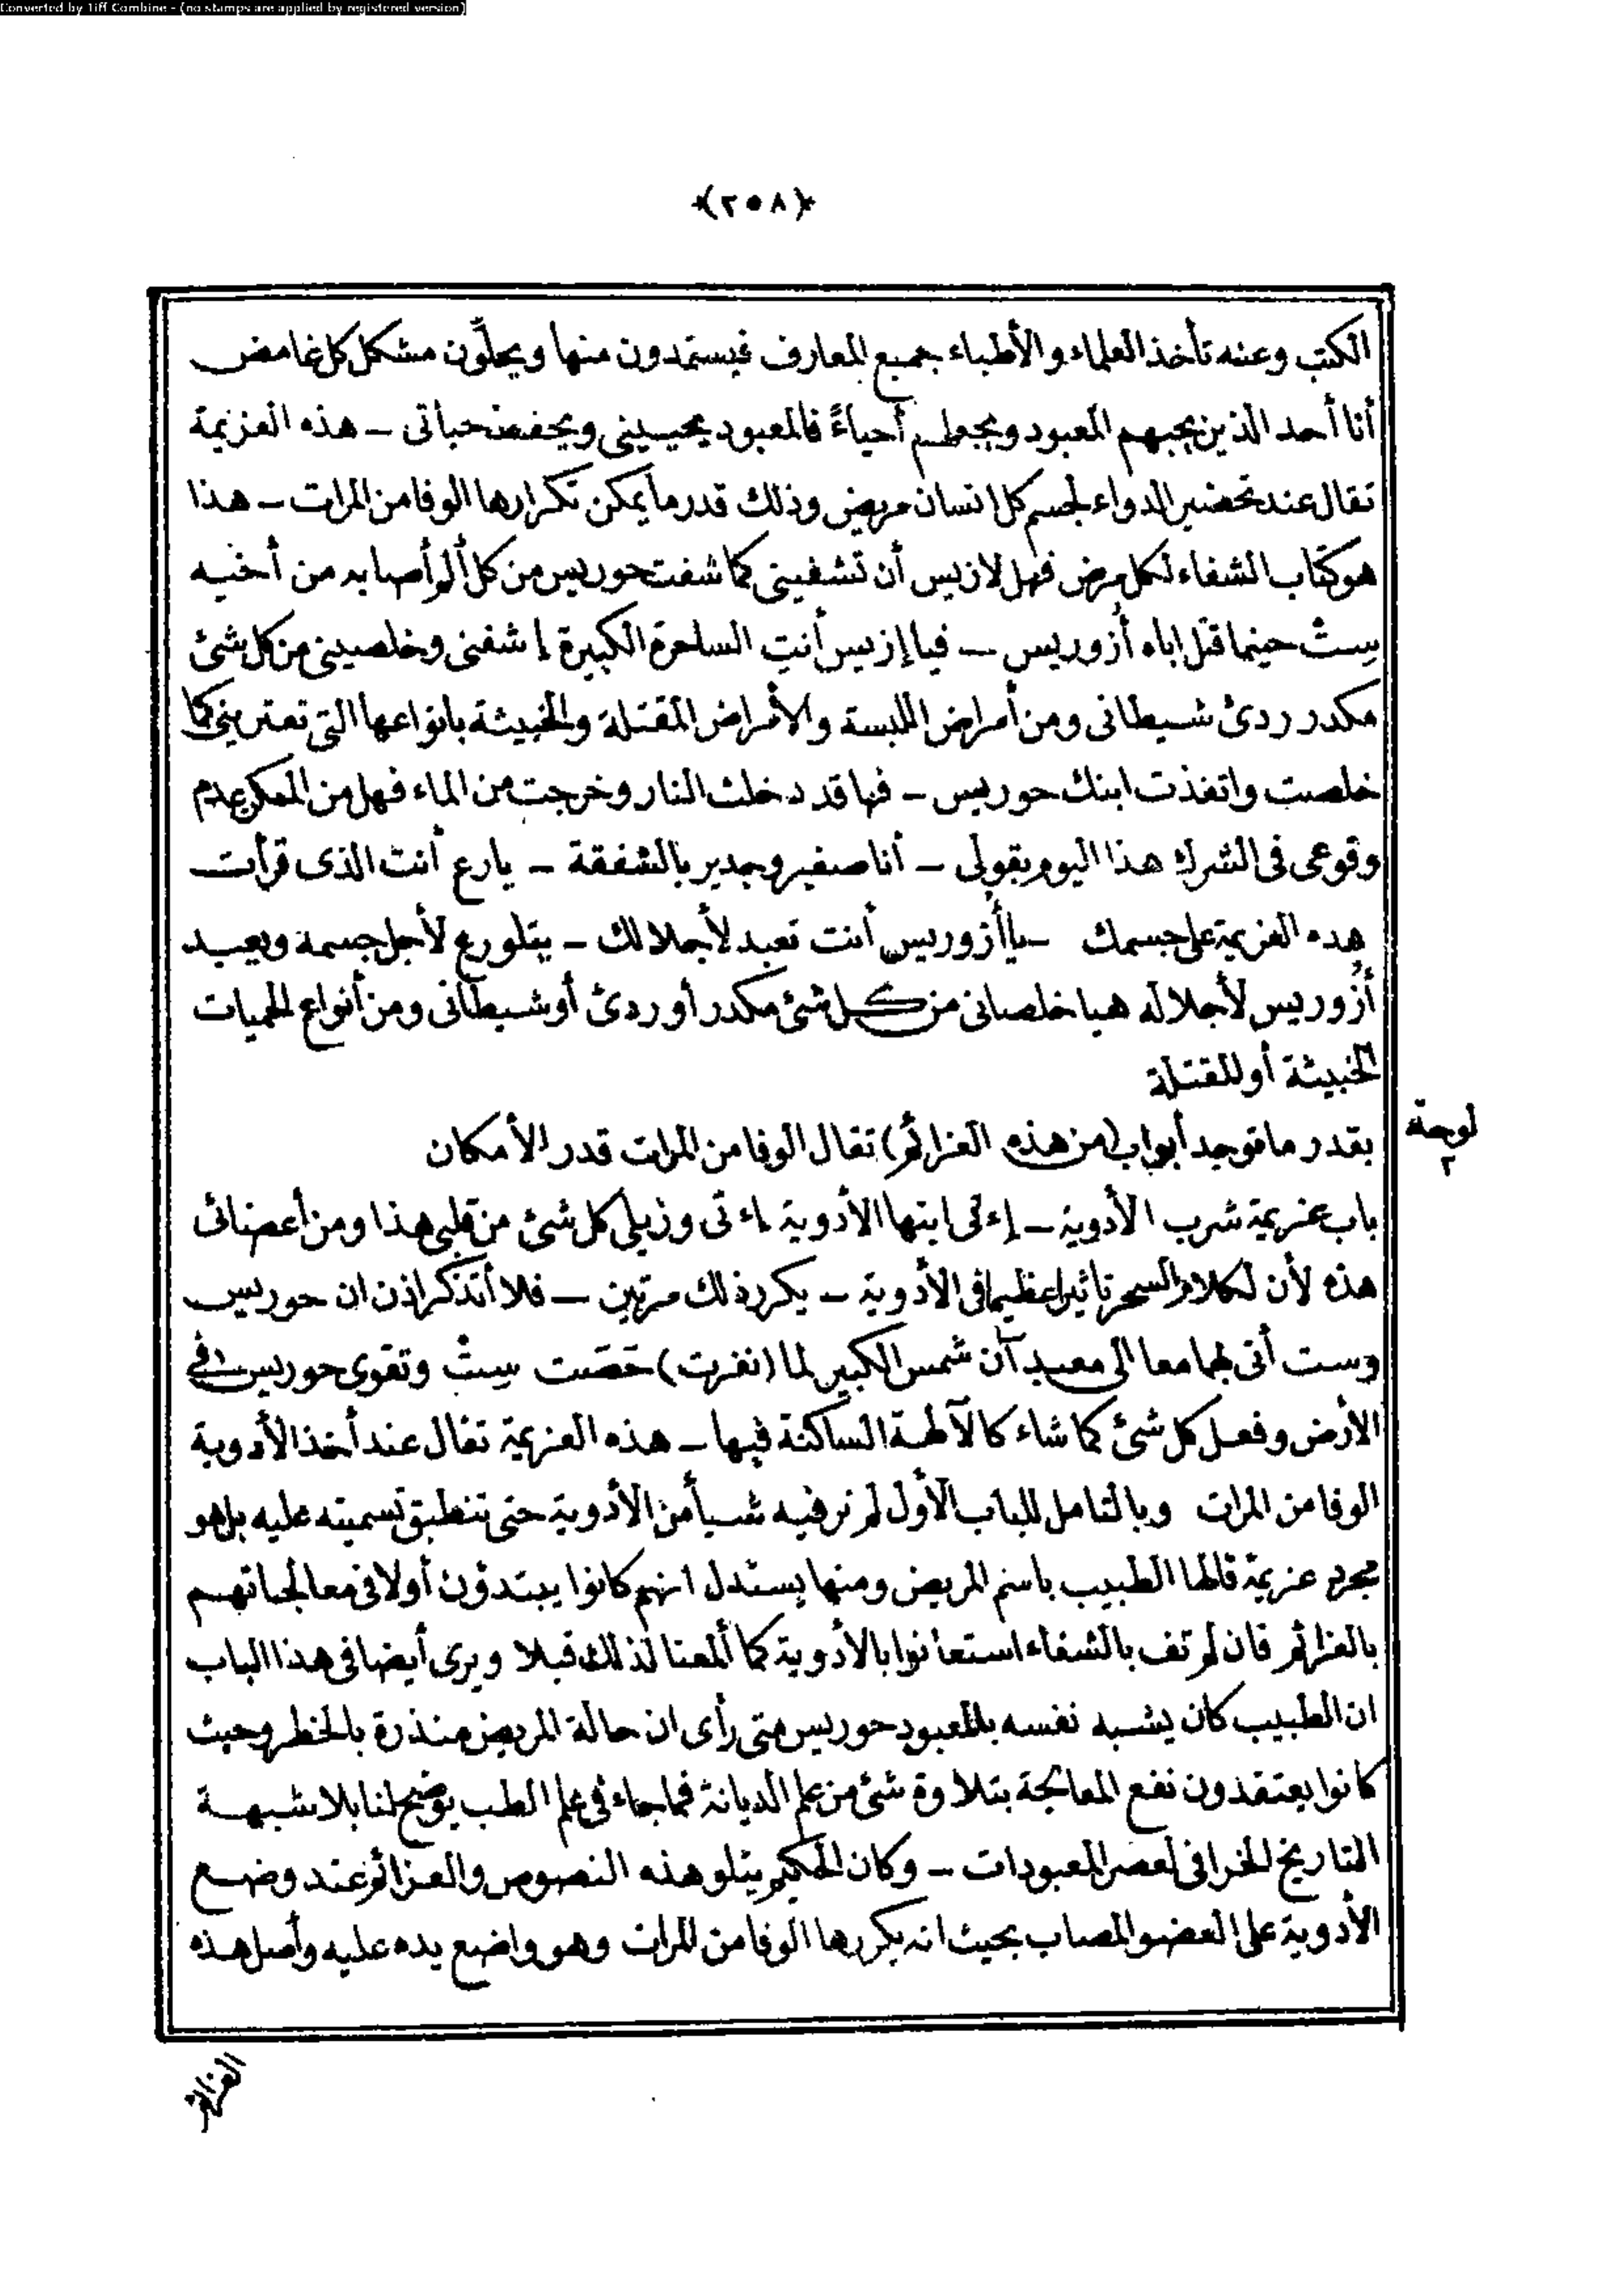 Converted by Tiff Combine - (no stamps are applied by registered version)
﴿٢٥٨﴾
الكتب وعنه تأخذ العلماء والأطباء جميع المعارف فيستمدون منها ويحلّون مشكل كل غامض
أنا أحد الذين يحبهم المعبود ويجعلهم أحياءً فالمعبود يحيينى ويحفظ حياتى – هذه العزيمة
تقال عند تحضير الدواء لجسم كل انسان مريض وذلك قدر ما يمكن تكرارها الوفا من المرات – هذا
هو كتاب الشفاء لكل مرض فهل لازيس أن تشفينى كما شفت حوريس من كل ألم أصابه من أخيه
سِتْ حينما قتل اباه أزوريس – فيا إزيس أنتِ الساحرة الكبيرة إشفنى وخلصينى من كل شئ
مكدر ردئ شيطانى ومن أمراض اللبسة والأمراض المقتلة والخبيثة بانواعها التى تعترينى كما
خلصت وانقذت ابنك حوريس – فها قد دخلت النار وخرجت من الماء فهل من الممكن عدم
وقوعى فى الشرك هذا اليوم بقولى – أنا صغير وجدير بالشفقة – يارع أنت الذى قرأت
هذه العزيمة على جسمك – يا أزوريس أنت تعبد لأجلالك – يتلو رع لأجل جسمه ويعبد
أزوريس لأجلاله هيا خلصانى من كل شئ مكدر أو ردئ أو شيطانى ومن أنواع الحميات
الخبيثة أو المقتلة
لوحة
٢
بقدر ما توجد أبواب (من هذه العزائم) تقال الوفا من المرات قدر الأمكان
باب عزيمة شرب الأدوية – إءتى ايتها الأدوية إءتى وزيلى كل شئ من قلبى هذا ومن أعضائى
هذه لأن لكلام السحر تاثيرا عظيما فى الأدوية – يكرر ذلك مرتين – فلا أتذكر اذن ان حوريس
وست أتى بهما معا الى معبد آن شمس الكبير لما (نفرت) خصَت سِتْ وتقوى حوريس فى
الأرض وفعل كل شئ كما شاء كالآلهة الساكنة فيها – هذه العزيمة تقال عند أخذ الأدوية
الوفا من المرات وبالتامل للباب الأول لم نر فيه شيأ من الأدوية حتى تنطبق تسميته عليه بل هو
مجرد عزيمة قالها الطبيب باسم المريض ومنها يستدل انهم كانوا يبتدؤن أولا فى معالجاتهم
بالعزائم فان لم تف بالشفاء استعانوا بالأدوية كما ألمعنا لذلك قبلا ويرى أيضا فى هذا الباب
ان الطبيب كان يشبه نفسه بالمعبود حوريس متى رأى ان حالة المريض منذرة بالخطر وحيث
كانوا يعتقدون نفع المعالجة بتلاوة شئ من علم الديانة فما جاء فى علم الطب يوضح لنا بلا شبهة
التاريخ الخرافى لعصر المعبودات – وكان الحكيم يتلو هذه النصوص والعزائم عند وضع
الأدوية على العضو المصاب بحيث انه يكررها الوفا من المرات وهو واضع يده عليه وأصل هذه
العزائم